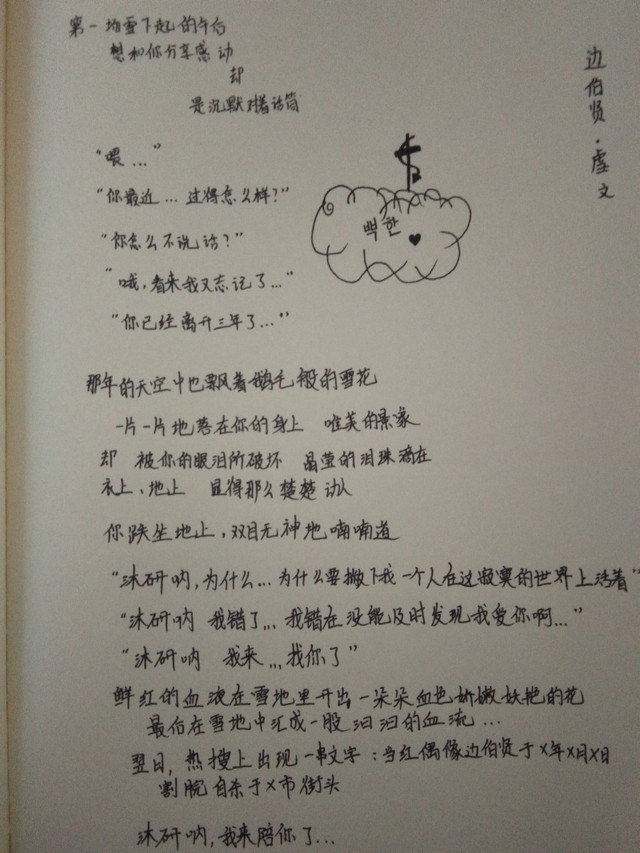 第一场雪下起的午后
想和你分享感动
却
是沉默对着话筒
边伯贤·虐文
“喂...”
“你最近...过得怎么样?”
“你怎么不说话?”
“哦,看来我又忘记了...”
“你已经离开三年了...”
백한♥
那年的天空中也飘着鹅毛般的雪花
一片一片地落在你的身上 唯美的景象
却 被你的眼泪所破坏 晶莹的泪珠滴在
衣上、地上 显得那么楚楚动人
你跌坐地上,双目无神地喃喃道
“沐研呐,为什么...为什么要撇下我一个人在这寂寞的世界上活着”
“沐研呐 我错了...我错在没能及时发现我爱你啊...”
“沐研呐 我来...找你了”
鲜红的血液在雪地里开出一朵朵血色娇嫩妖艳的花
最后在雪地中汇成一股汩汩的血流...
翌日,热搜上出现一串文字:当红偶像边伯贤于X年X月X日
割腕自杀于X市街头
沐研呐,我来陪你了...